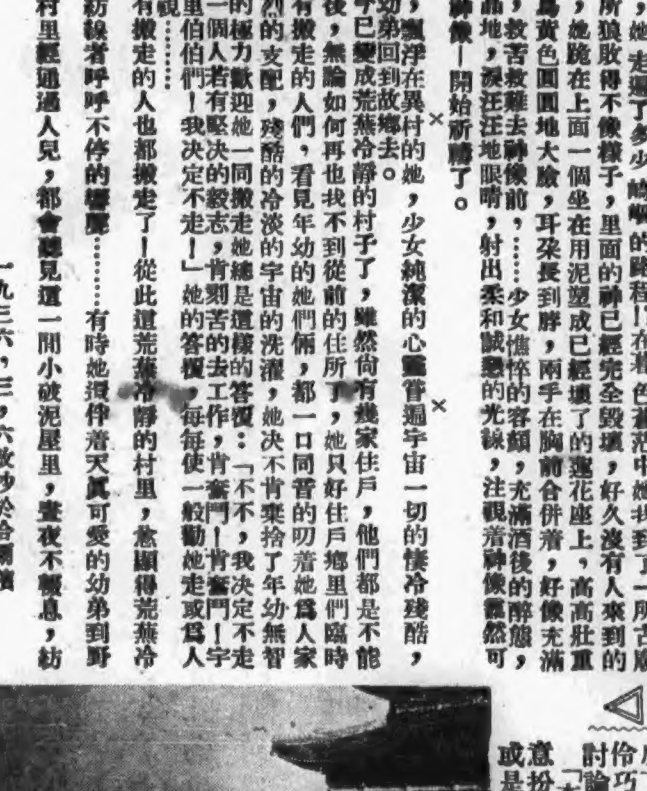 ，她走遍了多少 崎嶇的路程！在暮色蒼茫中她找到了一所古廟
所狼敗得不像樣子，里面的神已經完全毀壞，好久沒有人來到的
，她跪在上面一個坐在用泥塑成已經壞了的蓮花座上，高高壯重
爲黃色圓圓地大臉，耳朶長到脖，兩手在胸前合併着，好像充滿
，救苦救難去神像前，……少女憔悴的容顏，充滿酒後的醉態，
晶地，淚汪汪地眼睛，射出柔和誠懇的光線，注視着神像靄然可
神像—開始祈禱了。
× ×
，飄浮在異村的她，少女純潔的心靈嘗遍宇宙一切的悽冷殘酷，
幼弟回到故鄉去。
已變成荒蕪冷靜的村子了，雖然尚有幾家住戶，他們都是不能
後，無論如何再也找不到從前的住所了，她只好住戶鄉里們臨時
有搬走的人們，看見年幼的她們倆，都一口同音的叨着她爲人家
烈的支配，殘酷的冷淡的宇宙的洗濯，她决不肯棄捨了年幼無智
的極力歡迎她一同搬走她總是這樣的答復：「不不，我决定不走
一個人若有堅决的毅志，肯刻苦的去工作，肯奮鬥！肯奮鬥！字
里伯伯們！我决定不走！」她的答復，每每使一般勸她走或爲人
視………
有搬走的人也都搬走了！從此這荒蕪冷靜的村里，愈顯得荒蕪冷
紡線者呼呼不停的響聲………有時她伴着天眞可愛的幼弟到野
村里經通過人兒，都會聽見這一間小破泥屋里，晝夜不輟息，紡
一九三六，三，六散沙於哈爾濱
伶巧
討論
意扮
或是